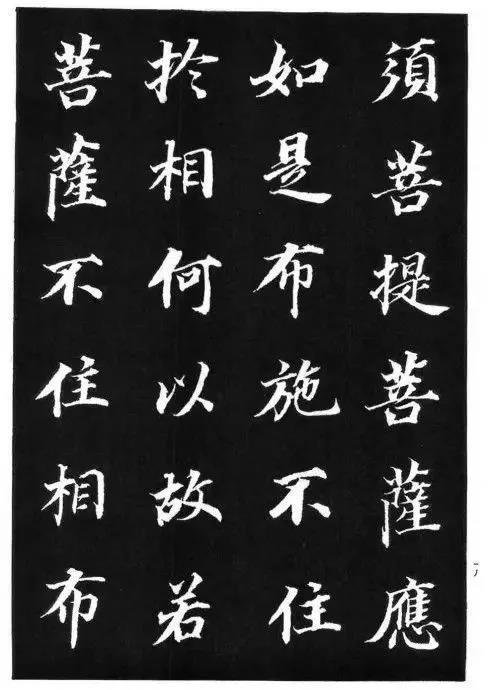 須菩提菩薩應
如是布施不住
扵相何以故若
菩薩不住相布